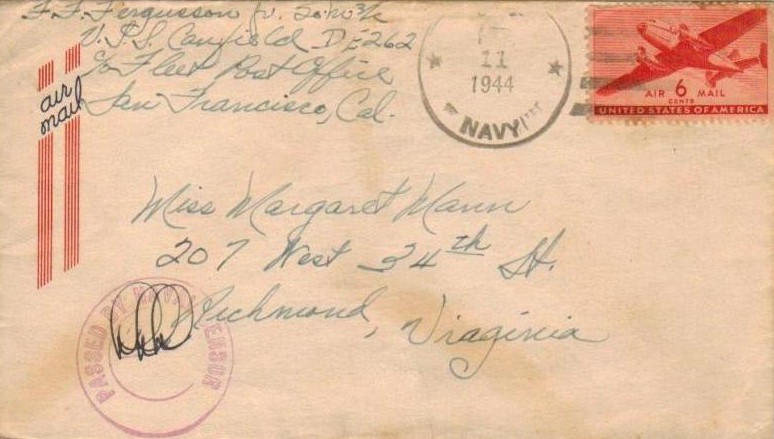 F. F. Fergusson Jr.
U.S.S. Canfield DE262
c/o Fleet Post Office
San Francisco, Cal.
air
mail
11
1944
NAVY
AIR 6 MAIL
CENTS
UNITED STATES OF AMERICA
Miss Margaret Mann
207 West 34th St.
Richmond, Viaginia
PASSED BY NAVAL CENSOR